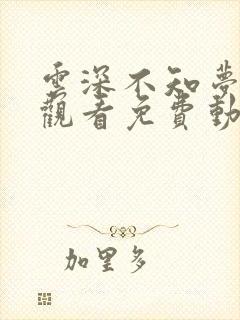 雲深不知夢
觀看免費動
加里多